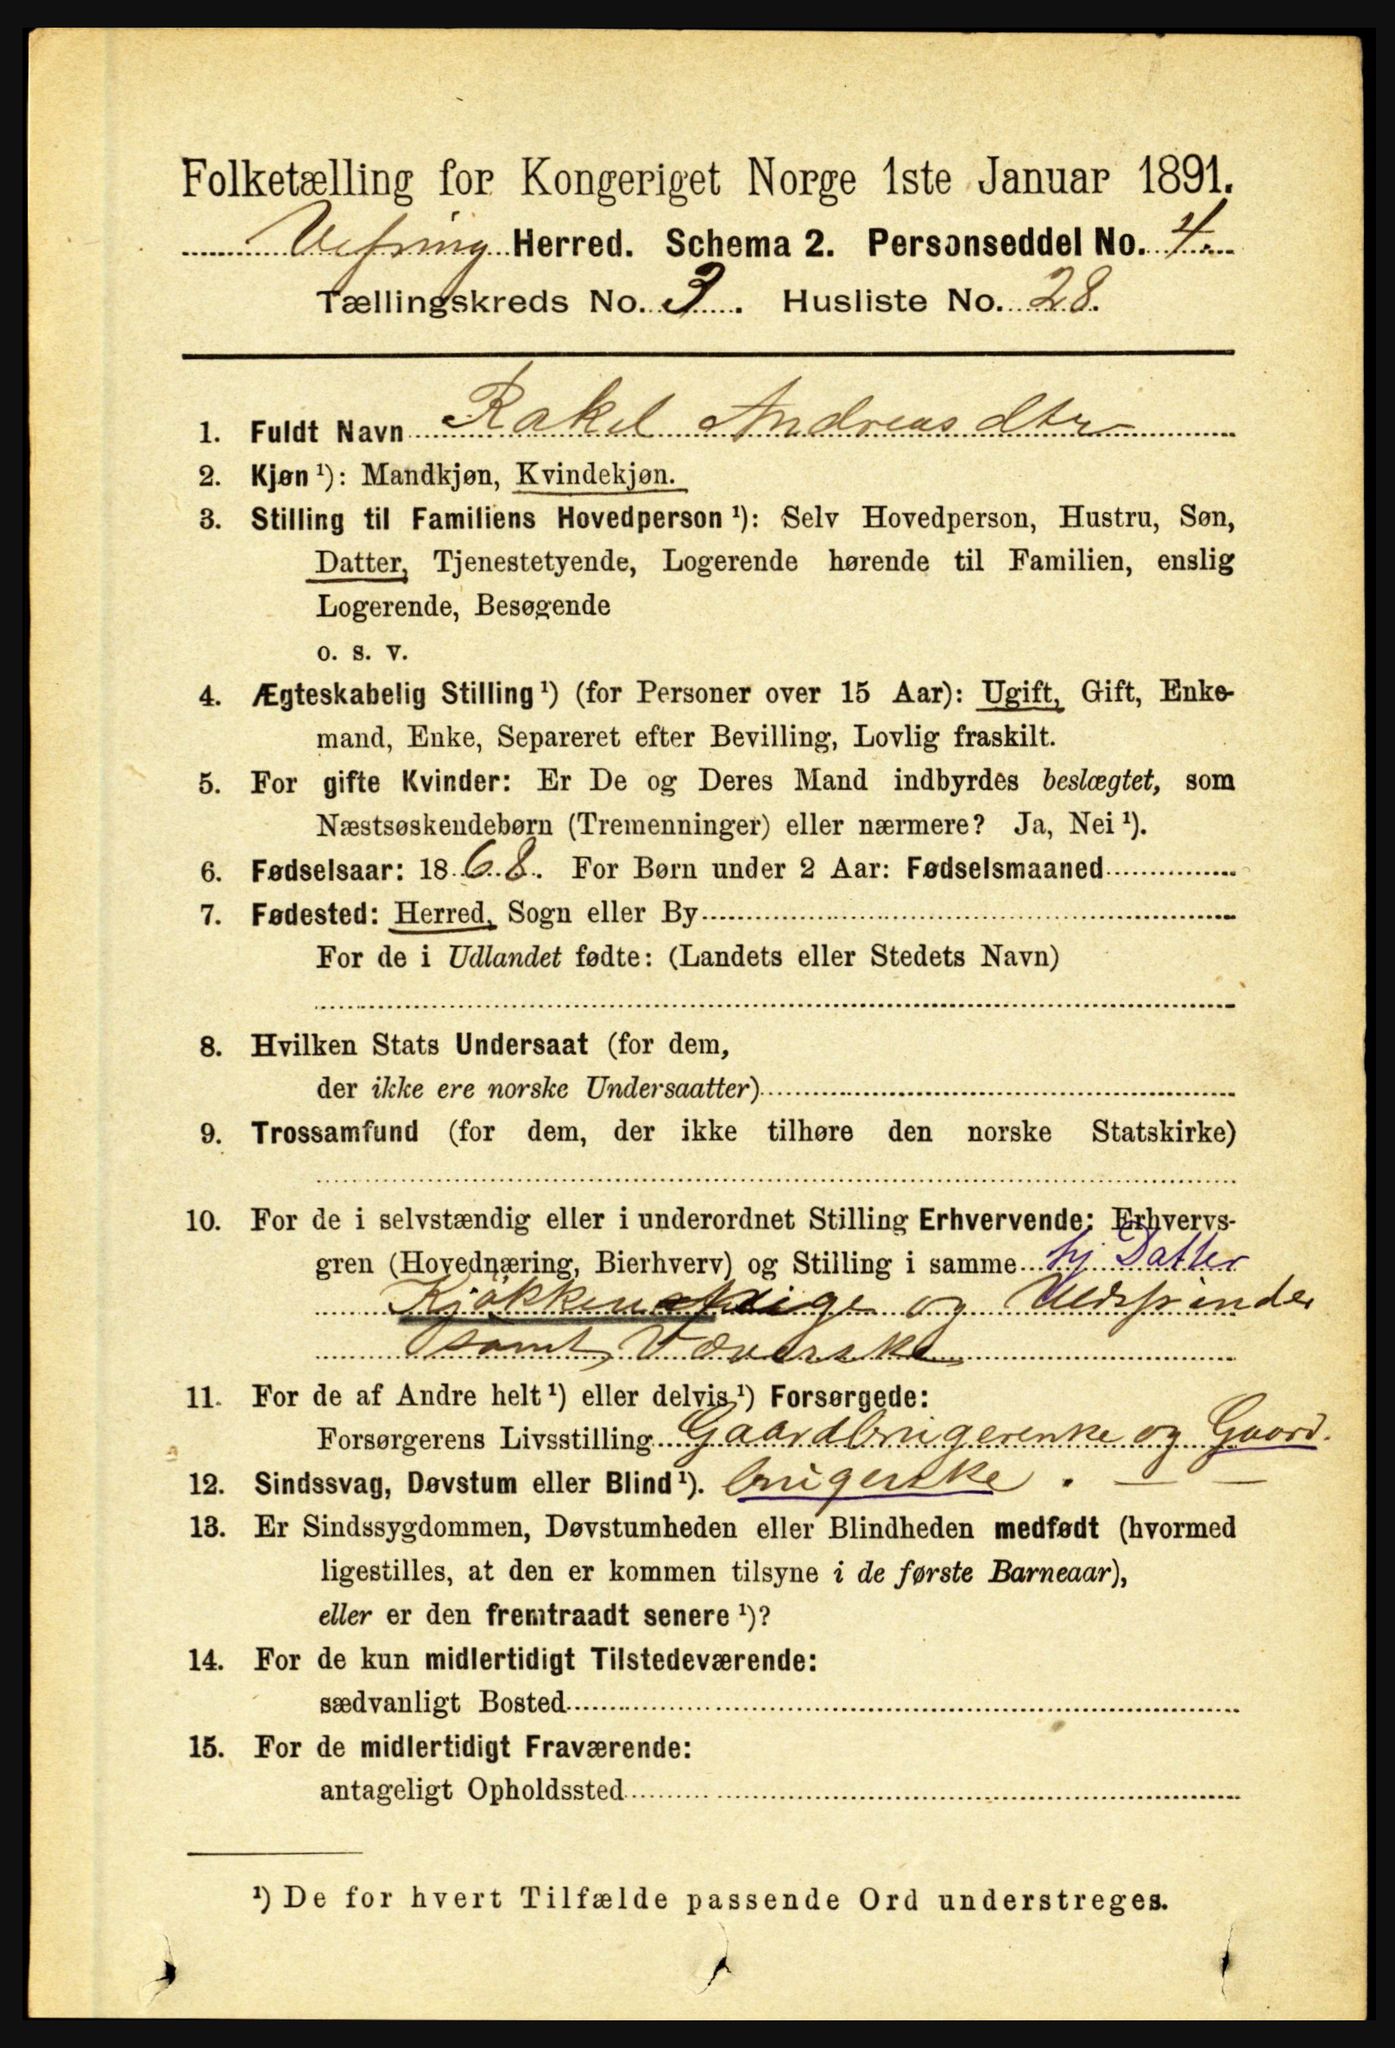 Folketælling for Kongeriget Norge 1ste Januar 1891.
Vefsning Herred. Schema 2. Personseddel No. 4.
Tællingskreds No. 3. Husliste No. 28.
1. Fuldt Navn Rakel Andreasdtr
2. Kjøn ¹): Mandkjøn, Kvindekjøn.
3. Stilling til Familiens Hovedperson ¹): Selv Hovedperson, Hustru, Søn,
Datter, Tjenestetyende, Logerende hørende til Familien, enslig
Logerende, Besøgende
o. s. v.
4. Ægteskabelig Stilling ¹) (for Personer over 15 Aar): Ugift, Gift, Enke-
mand, Enke, Separeret efter Bevilling, Lovlig fraskilt.
5. For gifte Kvinder: Er De og Deres Mand indbyrdes beslægtet, som
Næstsøskendebørn (Tremenninger) eller nærmere? Ja, Nei ¹).
6. Fødselsaar: 1868. For Børn under 2 Aar: Fødselsmaaned
7. Fødested: Herred, Sogn eller By
For de i Udlandet fødte: (Landets eller Stedets Navn)
8. Hvilken Stats Undersaat (for dem,
der ikke ere norske Undersaatter)
9. Trossamfund (for dem, der ikke tilhøre den norske Statskirke)
10. For de i selvstændig eller i underordnet Stilling Erhvervende: Erhvervs-
gren (Hovednæring, Bierhverv) og Stilling i samme hj Datter
Kjøkkenpige og Uldspinder
samt Væverske
11. For de af Andre helt ¹) eller delvis ¹) Forsørgede:
Forsørgerens Livsstilling Gaardbrugerenke og Gaard.
12. Sindssvag, Døvstum eller Blind ¹). brugerske.
13. Er Sindssygdommen, Døvstumheden eller Blindheden medfødt (hvormed
ligestilles, at den er kommen tilsyne i de første Barneaar),
eller er den fremtraadt senere ¹)?
14. For de kun midlertidigt Tilstedeværende:
sædvanligt Bosted
15. For de midlertidigt Fraværende:
antageligt Opholdssted
¹) De for hvert Tilfælde passende Ord understreges.